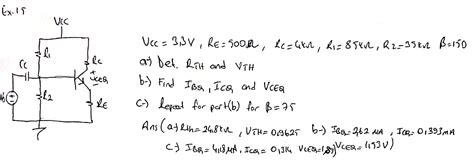 Ex.15
Vcc
R1
Rc
Cc
VCEQ
R2
RE
Vcc = 3,3V , RE = 500Ω , Rc = 4kΩ , R1 = 85kΩ , R2 = 35kΩ β = 150
a-) Det. RTH and VTH
b-) Find IBQ, ICQ and VCEQ
c-) Repeat for part(b) for β = 75
Ans (a-) Rth = 24,8kΩ , VTH = 0,9625 b-) IBQ = 2,62 uA , ICQ = 0,393mA
VCEQ = 1,53V)
c-) IBQ = uA, ICQ = 0,314